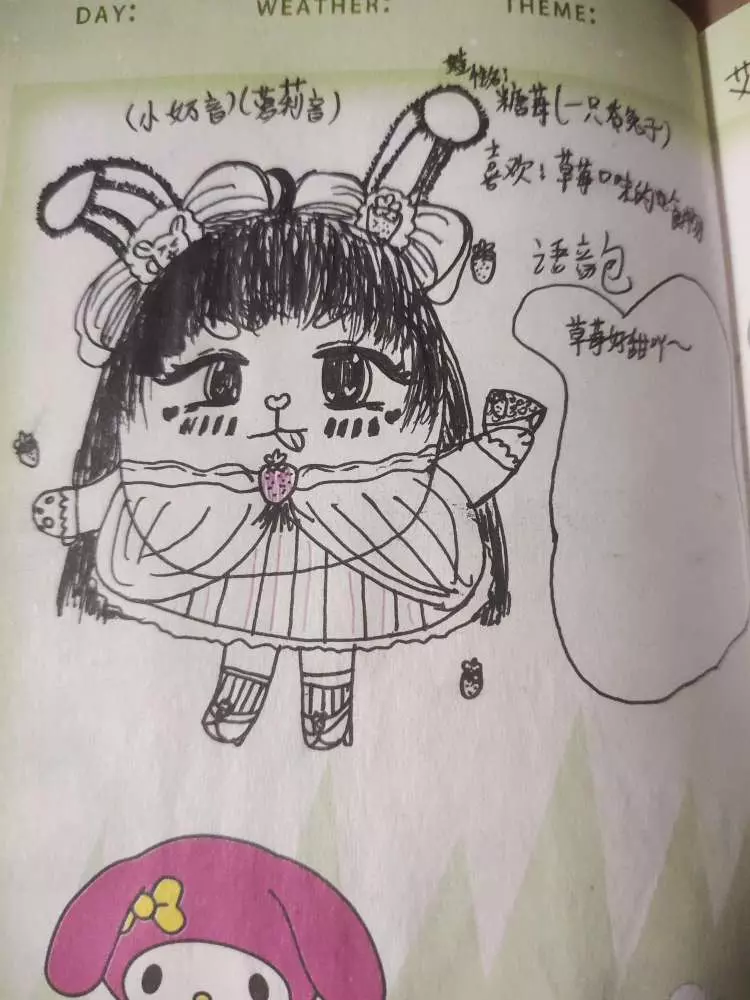 DAY: WEATHER: THEME:
(小奶音)(萝莉音)
糖莓(一只兔子)
喜欢:草莓口味的食物
语音包
草莓好甜吖~
艾